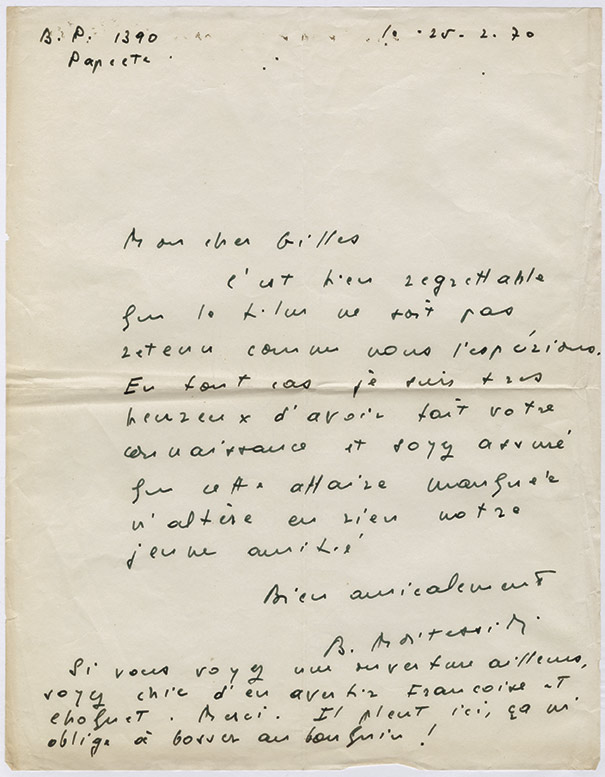 B. P. 1390
Papeete
le 25. 2. 70
Mon cher Gilles
C'est bien regrettable
que le film ne soit pas
retenu comme nous l'espérions.
En tout cas je suis très
heureux d'avoir fait votre
connaissance et soyez assuré
que cette affaire manquée
n'altère en rien notre
jeune amitié
Bien amicalement
B. Moitessier
Si vous voyez une ouverture ailleurs,
soyez chic d'en avertir Françoise et
choquet. Merci. Il pleut ici, ça m'
oblige à bosser au bouquin !